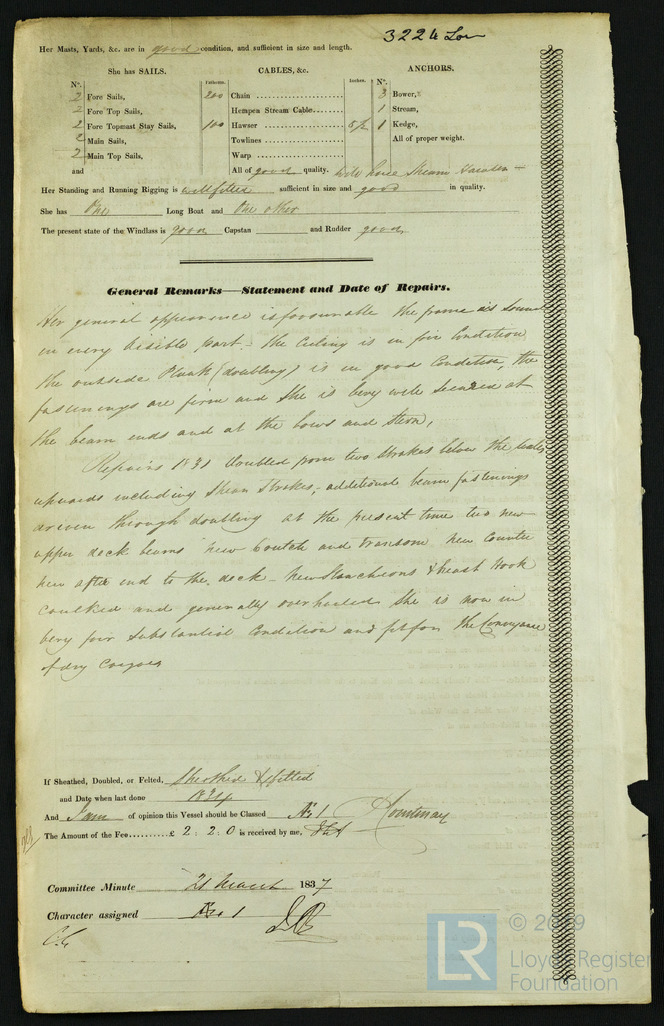 3224 Lon
Her Masts, Yards, &c. are in good condition, and sufficient in size and length.
She has SAILS. CABLES, &c. ANCHORS.
No. Fathoms. Inches. No.
2 Fore Sails, 200 Chain 3 Bower,s
2 Fore Top Sails, Hempen Stream Cable 1 Stream,
2 Fore Topmast Stay Sails, 100 Hawser 5½ 1 Kedge,
2 Main Sails, Towlines All of proper weight.
2 Main Top Sails, Warp
and All of good quality.
Her Standing and Running Rigging is well fitted sufficient in size and good in quality.
She has One Long Boat and One other
The present state of the Windlass is good Capstan and Rudder good
General Remarks—Statement and Date of Repairs.
Her general appearance is favourable the frame is sound
in every visible part. The Ceiling is in fair Condition
the outside Plank (doubling) is in good Condition, the
fastenings are firm and she is very well secured at
the beam ends and at the bows and stern,
Repairs 1831 doubled from two strakes below the wales
upwards including Shear Strakes, additional beam fastenings
driven through doubling at the present time two new
upper deck beams new and transom new Counter
new after end to the deck - New Stancheons & breast Hook
caulked and generally overhauled she is now in
very fair substantial Condition and fit for the Conveyance
of dry Cargoes
If Sheathed, Doubled, or Felted, Sheathed & felted
and Date when last done 1834
And I am of opinion this Vessel should be Classed Æ 1 Courtenay
The Amount of the Fee £ 2 : 2 : 0 is received by me,
Committee Minute 21 March 1837
Character assigned Æ 1
© 2019
LR
Lloyd's Register
Foundation